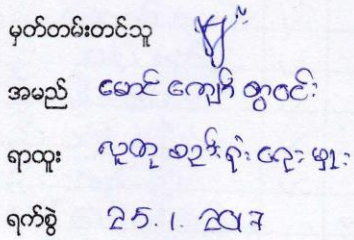 မှတ်တမ်းတင်သူ
အမည် မောင် ကျော် ထွဋ်ဝင်း
ရာထူး လူထု စည်းရုံး ရေး မှူး
ရက်စွဲ 25.1.2017